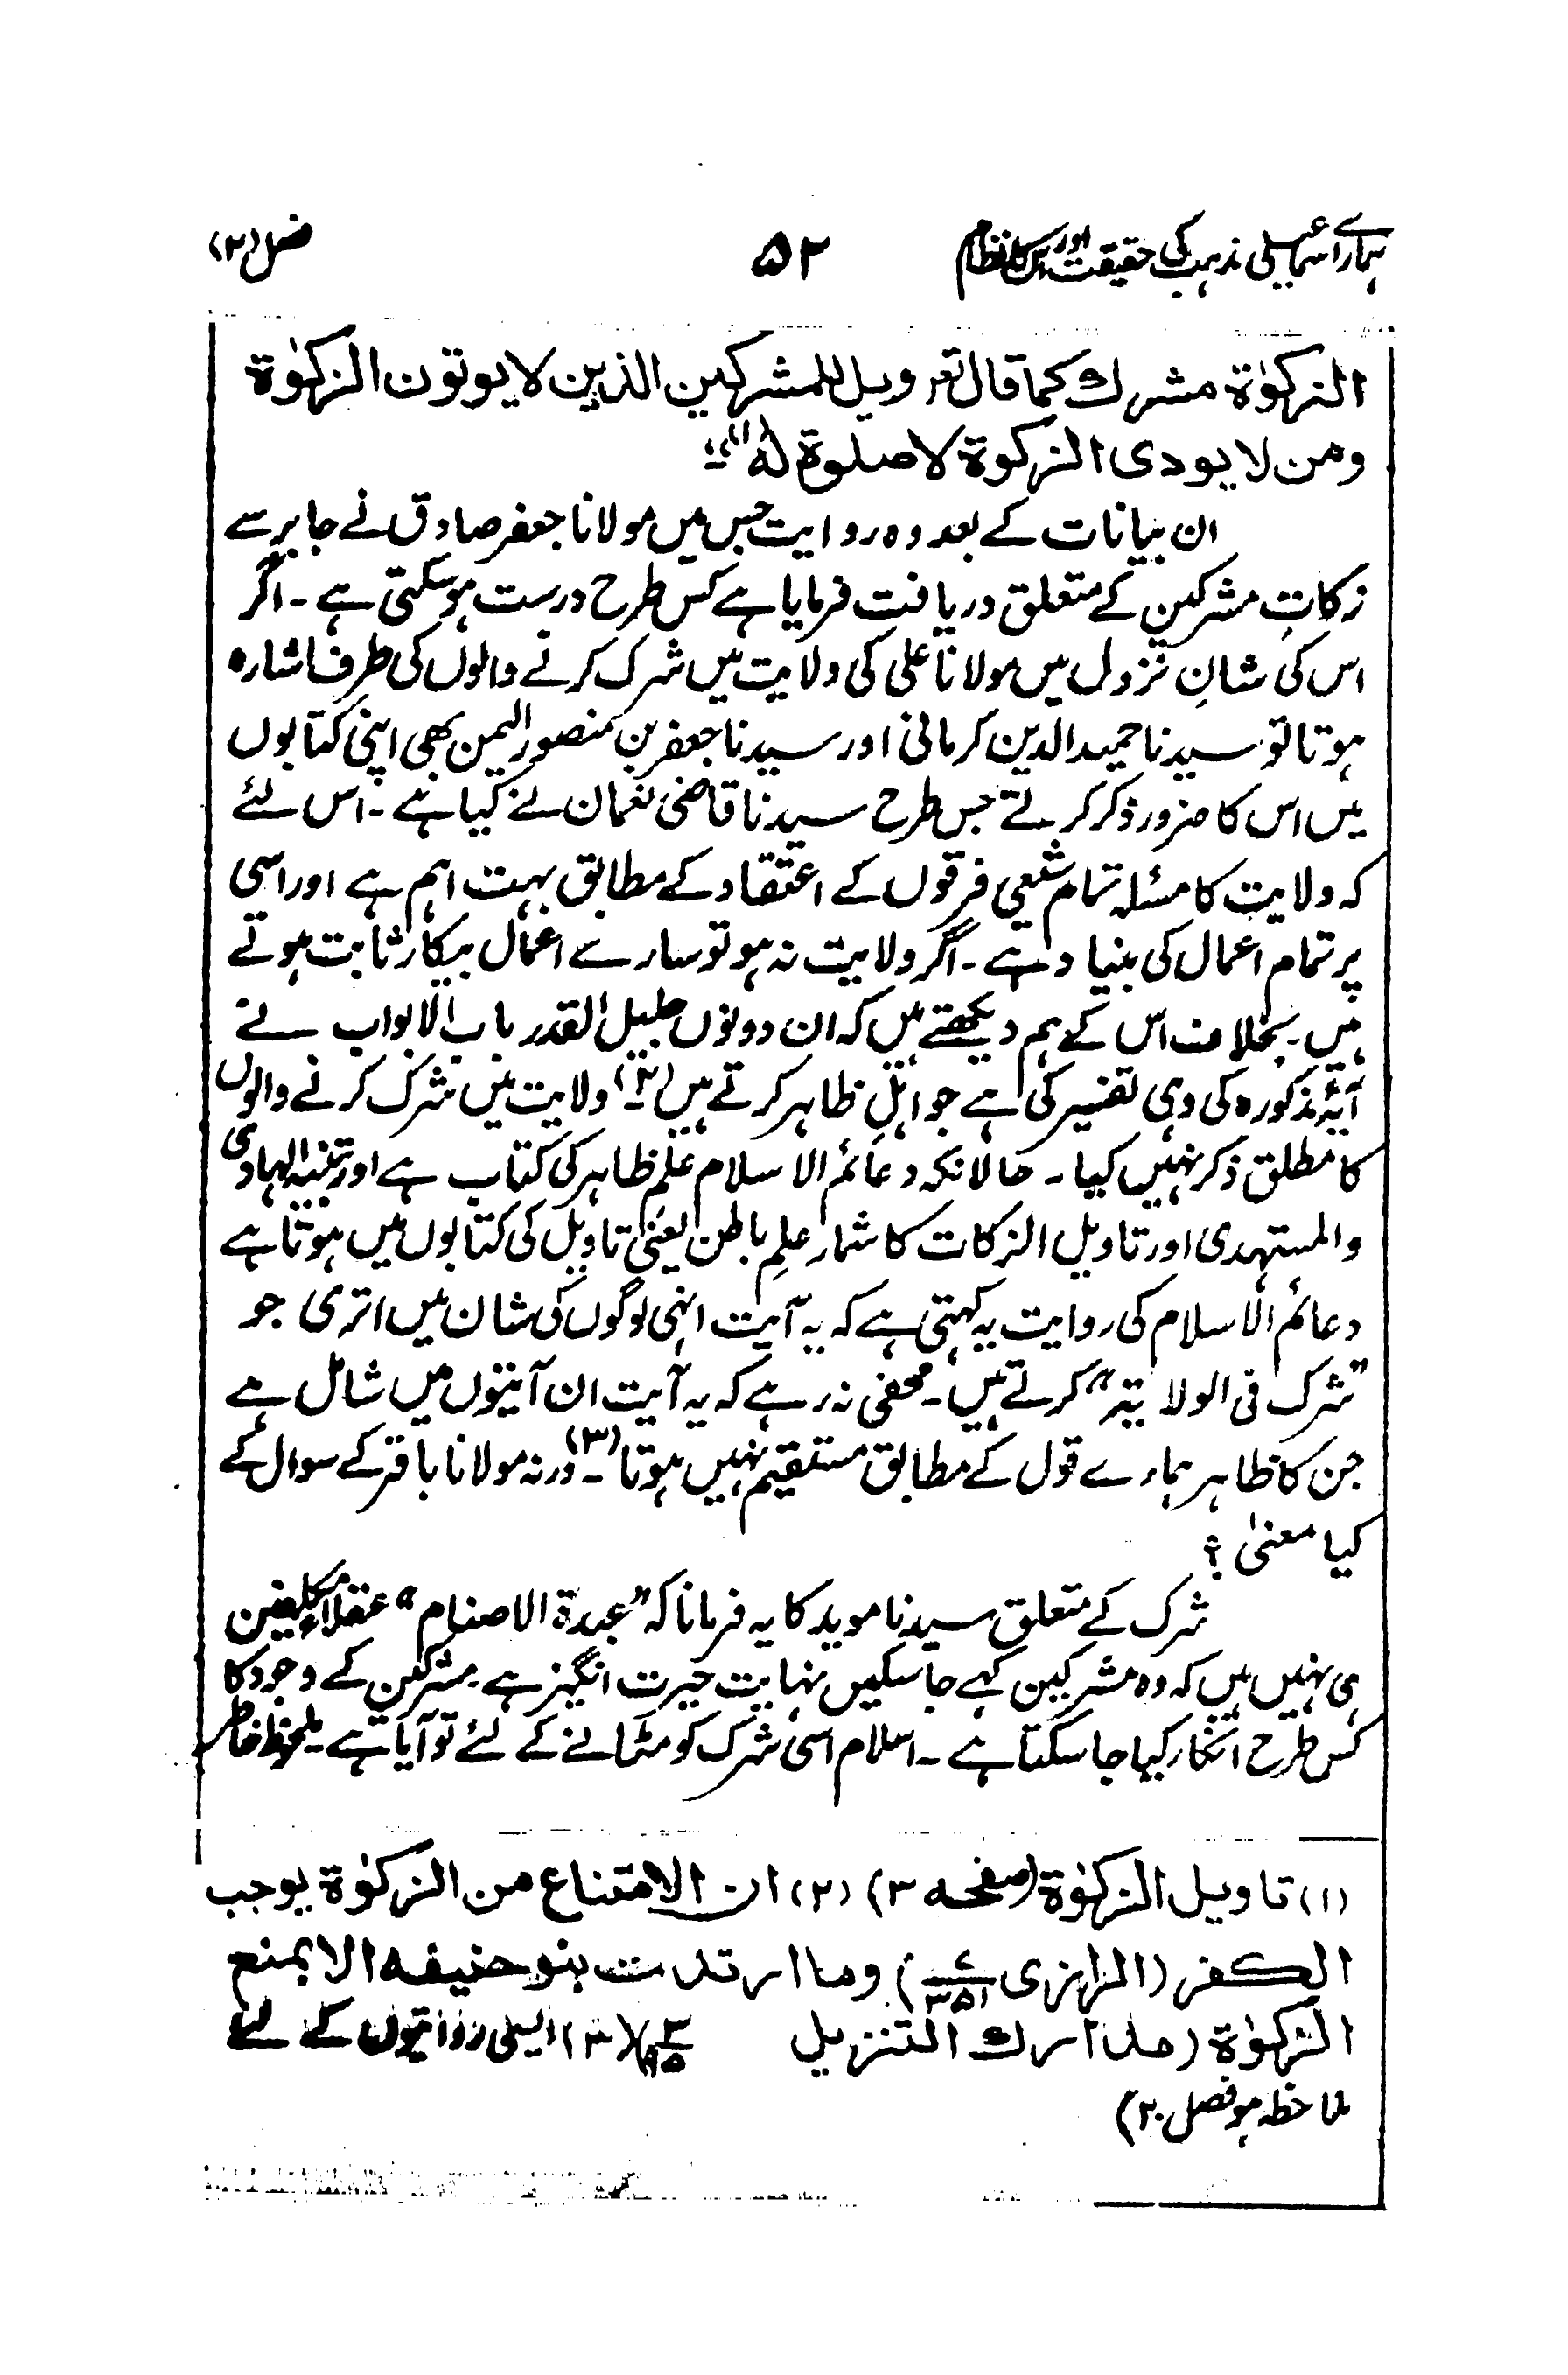 ہمارے اسماعیلی مذہب کی حقیقت اور اس کا نظام ۵۲ فصل (۲)
الزکوٰۃ مشرك كما قال تعہ وويل للمشركين الذين لا يوتون الزكوٰة
ومن لا يودى الزكوة لا صلوة له" (۱)
ان بیانات کے بعد وہ روایت جس میں مولانا جعفر صادق نے جابر سے
زکاتِ مشرکین کے متعلق دریافت فرمایا ہے کس طرح درست ہو سکتی ہے ۔ اگر
اس کی شانِ نزول میں مولانا علی کی ولایت میں شرک کرنے والوں کی طرف اشارہ
ہوتا تو سیدنا حمید الدین کرمانی اور سیدنا جعفر بن منصور الیمن بھی اپنی کتابوں
میں اس کا ضرور ذکر کرتے جس طرح سیدنا قاضی نعمان نے کیا ہے ۔ اس لئے
کہ ولایت کا مسئلہ تمام شیعی فرقوں کے اعتقاد کے مطابق بہت اہم ہے اور اسی
پر تمام اعمال کی بنیاد ہے ۔ اگر ولایت نہ ہو تو سارے اعمال بیکار ثابت ہوتے
ہیں ۔ بخلاف اس کے ہم دیکھتے ہیں کہ ان دونوں جلیل القدر باب الابواب نے
آیۂ مذکورہ کی وہی تفسیر کی ہے جو اہلِ ظاہر کرتے ہیں (۲)۔ ولایت میں شرک کرنے والوں
کا مطلق ذکر نہیں کیا ۔ حالانکہ دعائم الاسلام علمِ ظاہر کی کتاب ہے اور تنبیہ الہادی
والمستہدی اور تاویل الزکات کا شمار علمِ باطن یعنی تاویل کی کتابوں میں ہوتا ہے
دعائم الاسلام کی روایت یہ کہتی ہے کہ یہ آیت انہی لوگوں کی شان میں اتری جو
"شرک فی الولایتہ" کرتے ہیں ۔ مخفی نہ رہے کہ یہ آیت ان آیتوں میں شامل ہے
جن کا ظاہر ہمارے قول کے مطابق مستقیم نہیں ہوتا (۳)۔ ورنہ مولانا باقر کے سوال کے
کیا معنیٰ ؟
شرک کے متعلق سیدنا موید کا یہ فرمانا کہ "عبدۃ الاصنام" عقلاء مکلفین
ہی نہیں ہیں کہ وہ مشرکین کہے جا سکیں نہایت حیرت انگیز ہے ۔ مشرکین کے وجود کا
کس طرح انکار کیا جا سکتا ہے ۔ اسلام اسی شرک کو مٹانے کے لئے تو آیا ہے ۔ ملحوظ خاطر
(۱) تاويل الزكوٰة (صفحه ۳) (۲) ان الامتناع من الزكوٰة يوجب
الكفر (الرازى ) وما ارتدت بنو حنيفه الا بمنع
الزكوٰة (مدارك التنزيل ) (۳) ایسی روایتوں کے لئے
ملاحظہ ہو فصل ۲۰)